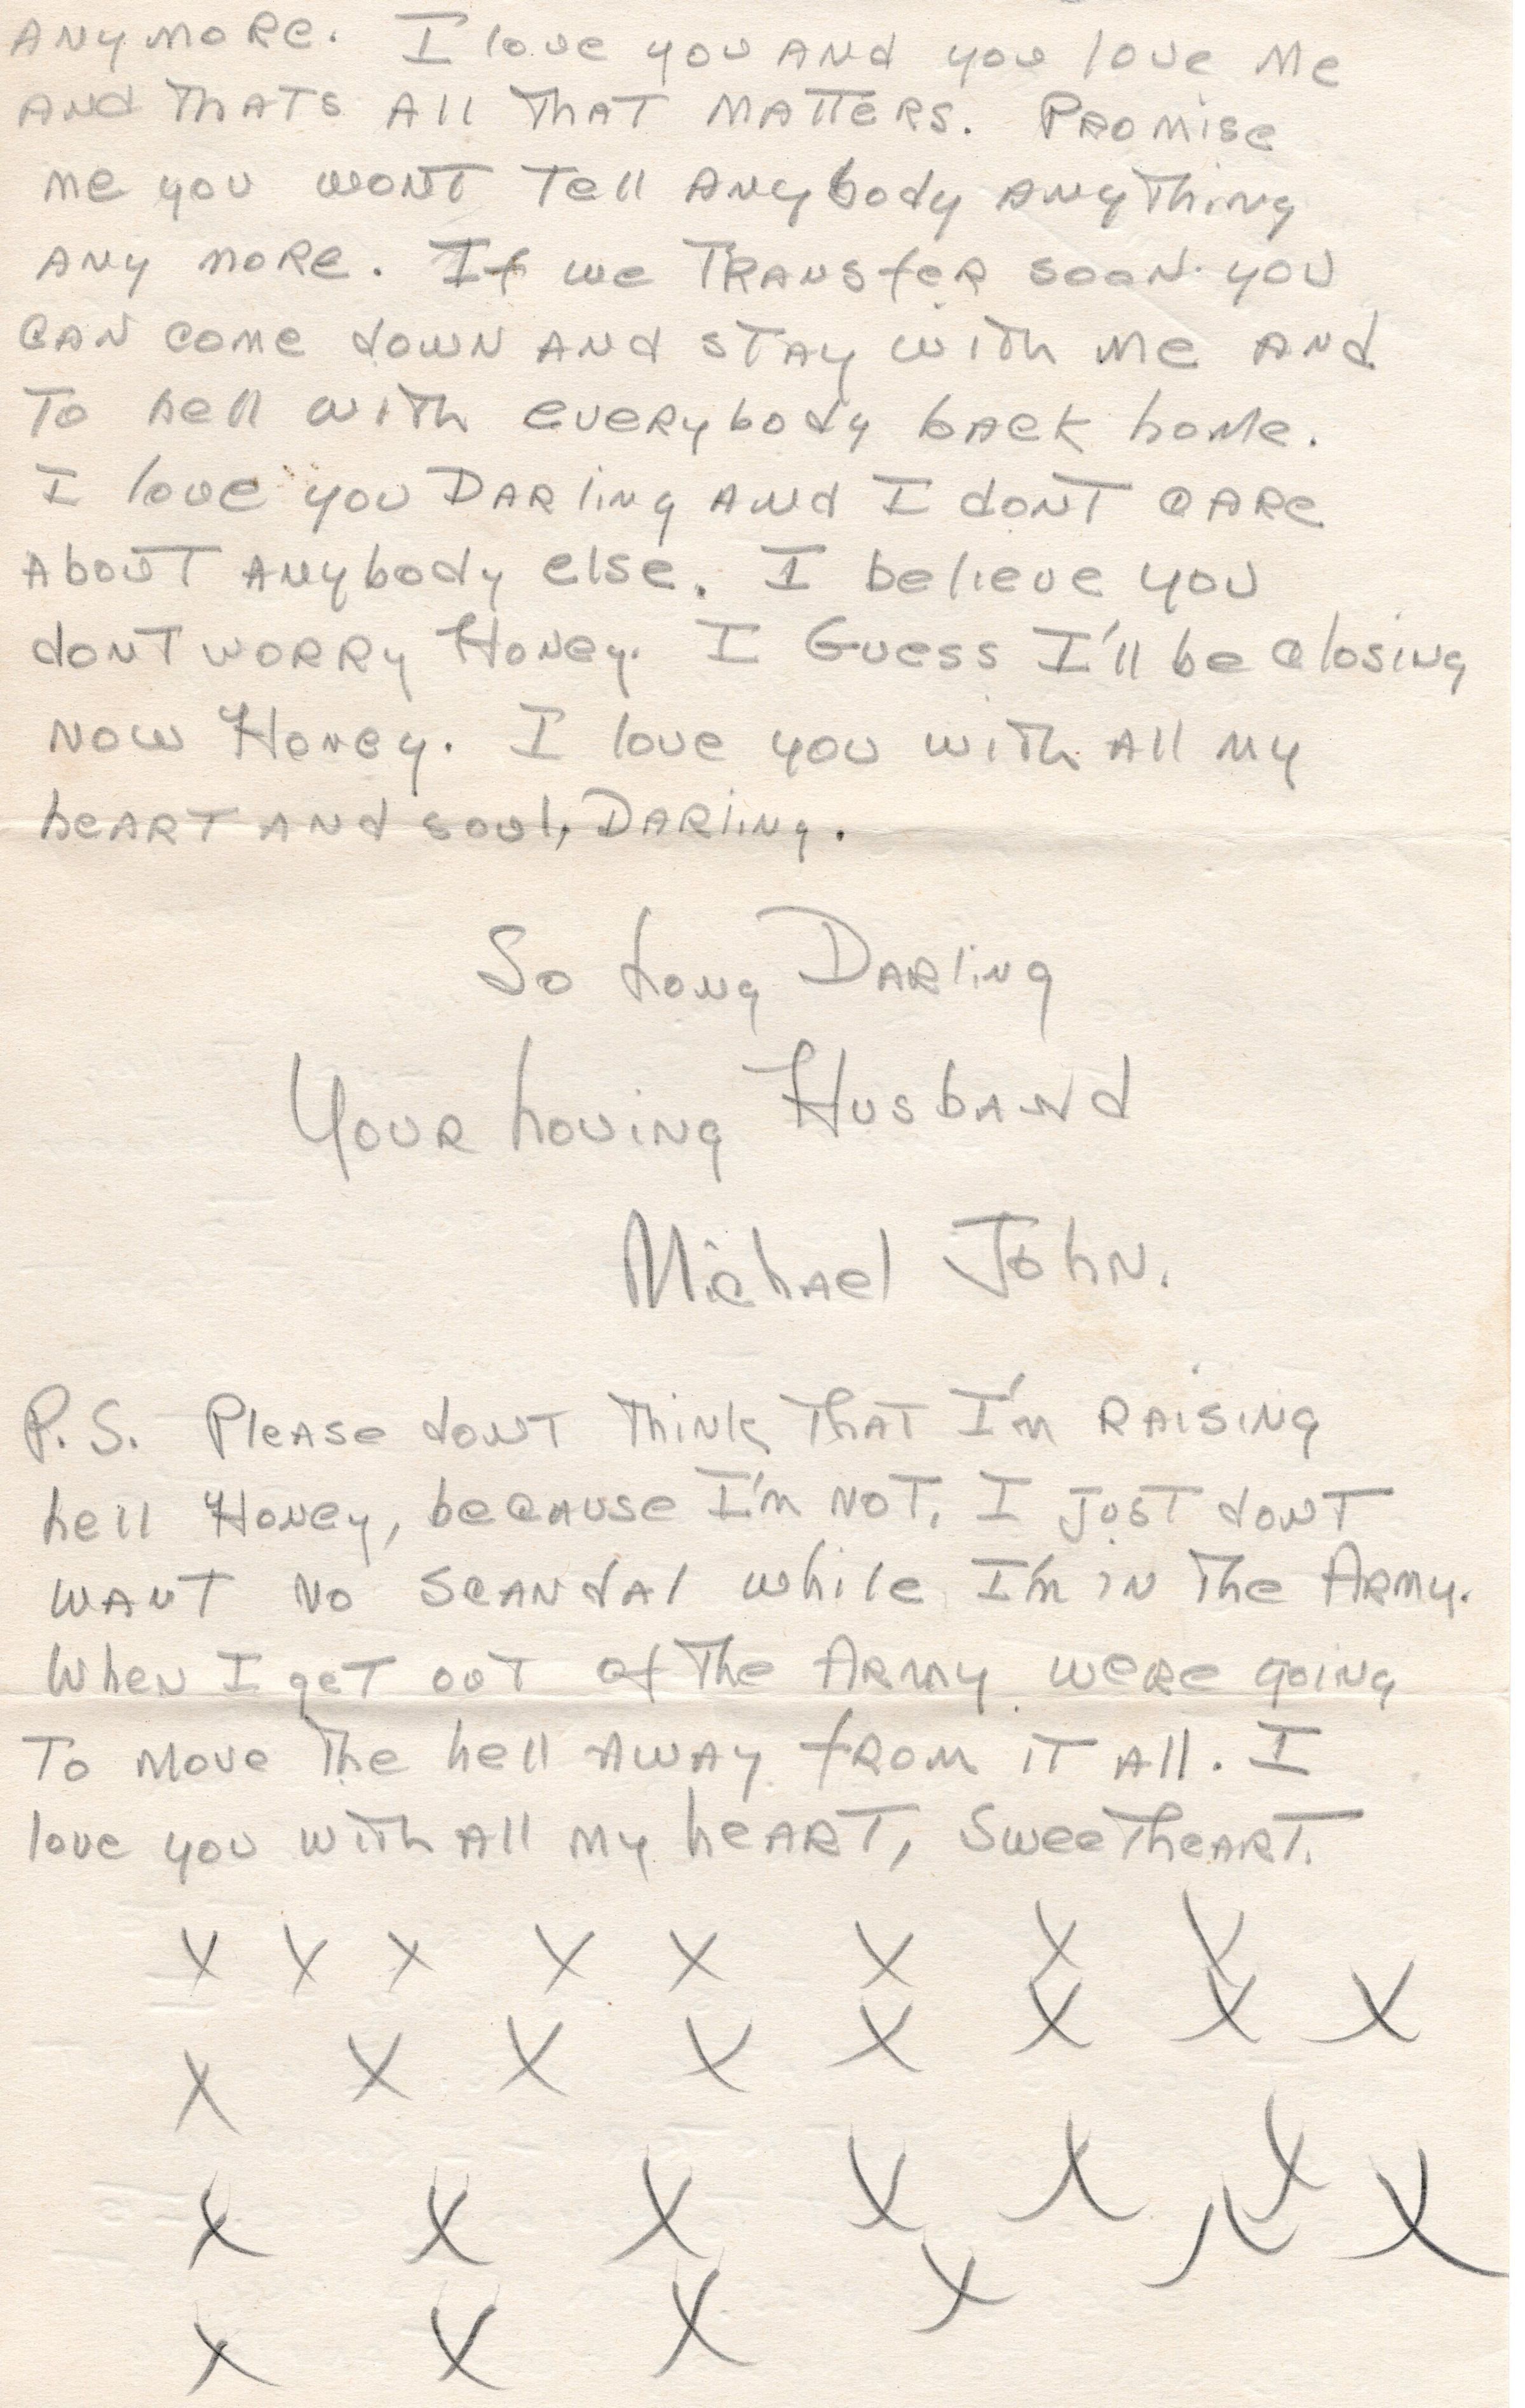 ANYMORE. I love you AND you love Me
AND THATS All THAT MATTERS. PROMISE
me you wont Tell ANybody ANyThing
ANy moRe. If we TRANSfeR sooN you
CAN come down AND STAy wiTh me AND
To hell with eveRybody bAck home.
I love you DARling AND I donT CARe
About ANybody else. I believe you
donT woRRy Honey. I Guess I'll be closing
Now Honey. I love you with All my
heART AND soul, DARling.
So Long DARling
YouR Loving HusbAND
MichAel JohN.
P.S. PleAse donT Think ThAT I'm RAising
hell Honey, becAuse I'm NOT. I JusT donT
wANT No scANdAl while I'm in The ARmy.
When I geT ouT of The ARmy weRe going
To move The hell AwAy fRom iT All. I
love you wiTh All my heART, SweeTheART.
X X X X X X X X
X X X X X X X X
X X X X X X X
X X X X X